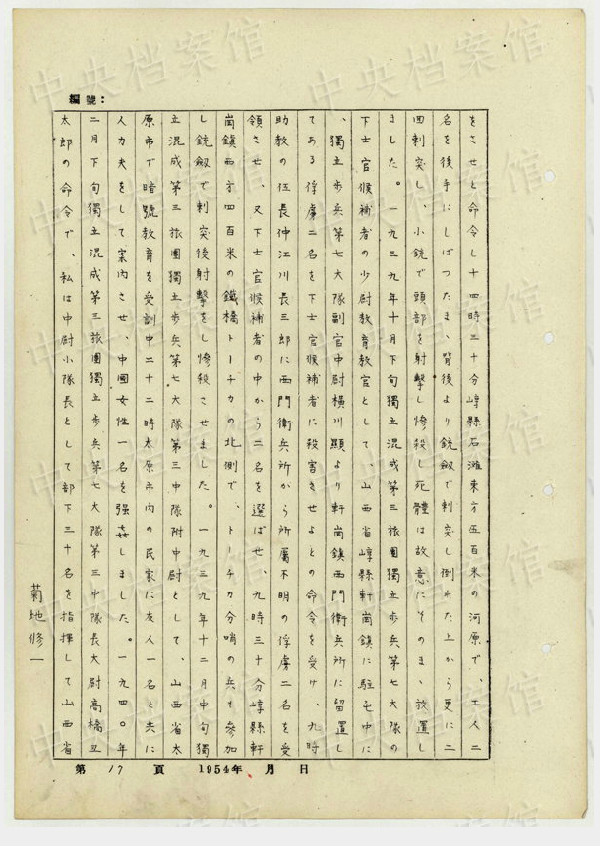 編號：
をさせと命令し十四時三十分崞縣石灘東方五百米の河原で、工人二
名を後手にしばつたまゝ背後より銃劔で刺突し倒れた上から更に二
四刺突し、小銃で頭部を射擊し慘殺し死體は故意にそのまゝ放置し
ました。一九三九年十月下旬獨立混成第三旅團獨立步兵第七大隊の
下士官候補者の少尉教育教官として、山西省崞縣軒崗鎮に駐屯中に
、獨立步兵第七大隊副官中尉橫川顯より軒崗鎮西門衛兵所に留置し
てある俘虜二名を下士官候補者に殺害させよとの命令を受け、九時
助教の伍長仲江川長三郎に西門衛兵所から所屬不明の俘虜二名を受
領させ、又下士官候補者の中から二名を選ばせ、九時三十分崞縣軒
崗鎮西方四百米の鐵橋トーチカの北側で、トーチカ分哨の兵も參加
し銃劔で刺突後射擊をし慘殺させました。一九三九年十二月中旬獨
立混成第三旅團獨立步兵第七大隊第三中隊附中尉として、山西省太
原市で暗號教育を受訓中二十二時太原市內の民家に友人一名と共に
人力夫をして案內させ、中國女性一名を强姦しました。一九四〇年
二月下旬獨立混成第三旅團獨立步兵第七大隊第三中隊長大尉高橋五
太郎の命令で、私は中尉小隊長として部下三十名を指揮して山西省
菊地修一
第 17 頁 1954年 月 日
中央档案馆